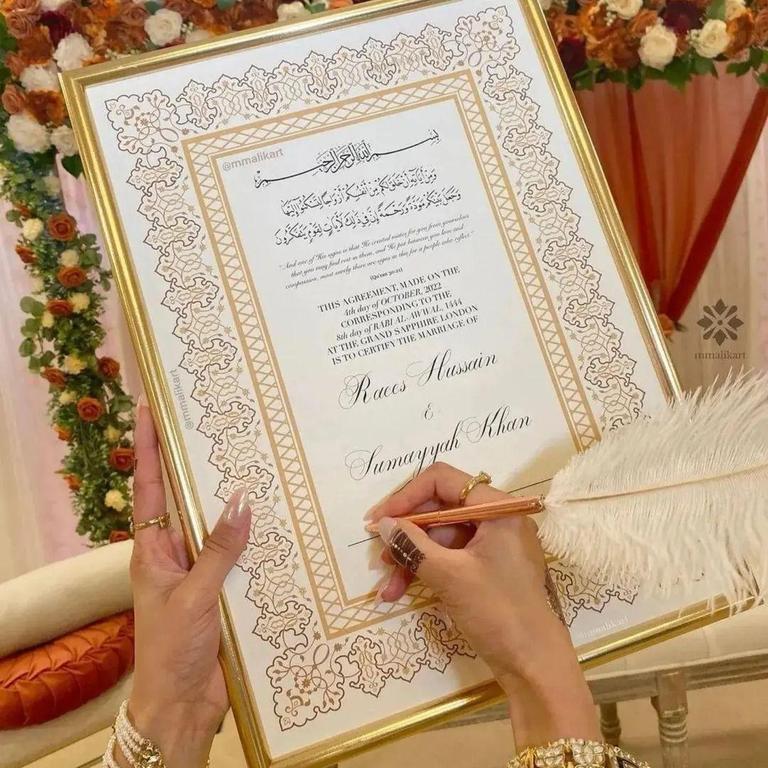 @mmalikart
بسم الله الرحمن الرحيم
وَمِنْ آيَاتِهِ أَنْ خَلَقَ لَكُم مِّنْ أَنفُسِكُمْ أَزْوَاجًا لِّتَسْكُنُوا إِلَيْهَا
وَجَعَلَ بَيْنَكُم مَّوَدَّةً وَرَحْمَةً إِنَّ فِي ذَلِكَ لَآيَاتٍ لِّقَوْمٍ يَتَفَكَّرُونَ
"And one of His signs is that He created mates for you from yourselves
that you may find rest in them, and He put between you love and
compassion, most surely there are signs in this for a people who reflect."
(Qu'ran 30:21)
THIS AGREEMENT, MADE ON THE
4th day of OCTOBER, 2022
CORRESPONDING TO THE
8th day of RABI AL-AWWAL, 1444
AT THE GRAND SAPPHIRE LONDON
IS TO CERTIFY THE MARRIAGE OF
Raees Hussain
&
Sumayyah Khan
@mmalikart
mmalikart
@mmalikart